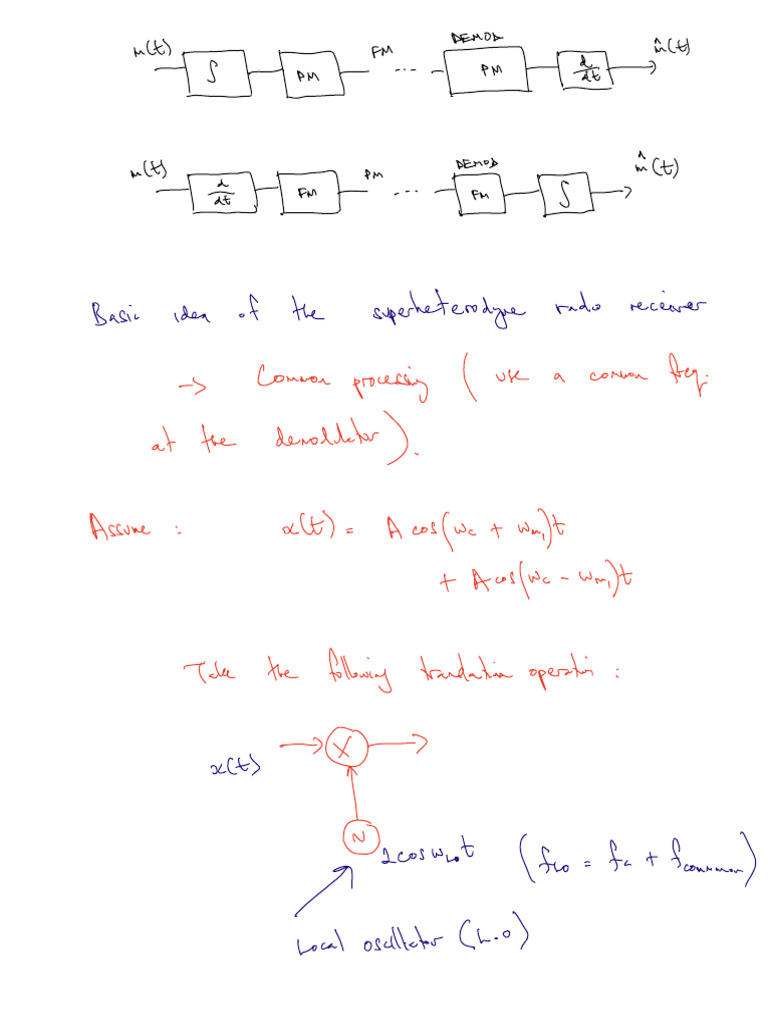 m(t) ∫ PM FM ... DEMOD PM d/dt m̂(t)
m(t) d/dt FM PM ... DEMOD FM ∫ m̂(t)
Basic idea of the superheterodyne radio receiver
→ Common processing ( use a common freq.
at the demodulator).
Assume : x(t) = A cos(ωc + ωm₁)t
+ A cos(ωc - ωm₁)t
Take the following translation operation :
X
x(t)
N
2 cos ω_LO t (f_LO = fc + f_common)
Local oscillator (L.O)